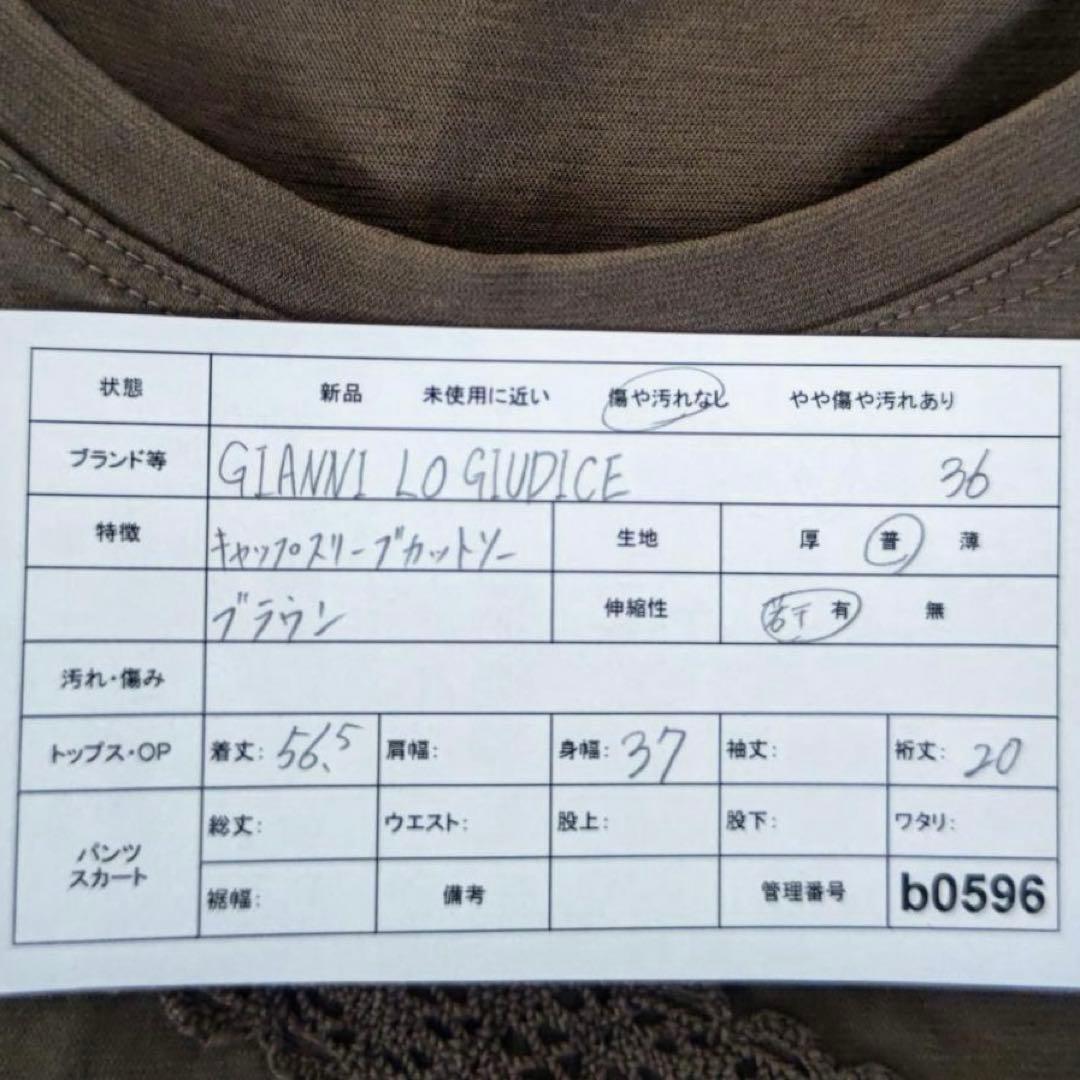 状態 新品 未使用に近い 傷や汚れなし やや傷や汚れあり
ブランド等 GIANNI LO GIUDICE 36
特徴 キャップスリーブカットソー 生地 厚 普 薄
ブラウン 伸縮性 若干 有 無
汚れ・傷み
トップス・OP 着丈: 56.5 肩幅: 身幅: 37 袖丈: 裄丈: 20
パンツ スカート 総丈: ウエスト: 股上: 股下: ワタリ:
裾幅: 備考 管理番号 b0596